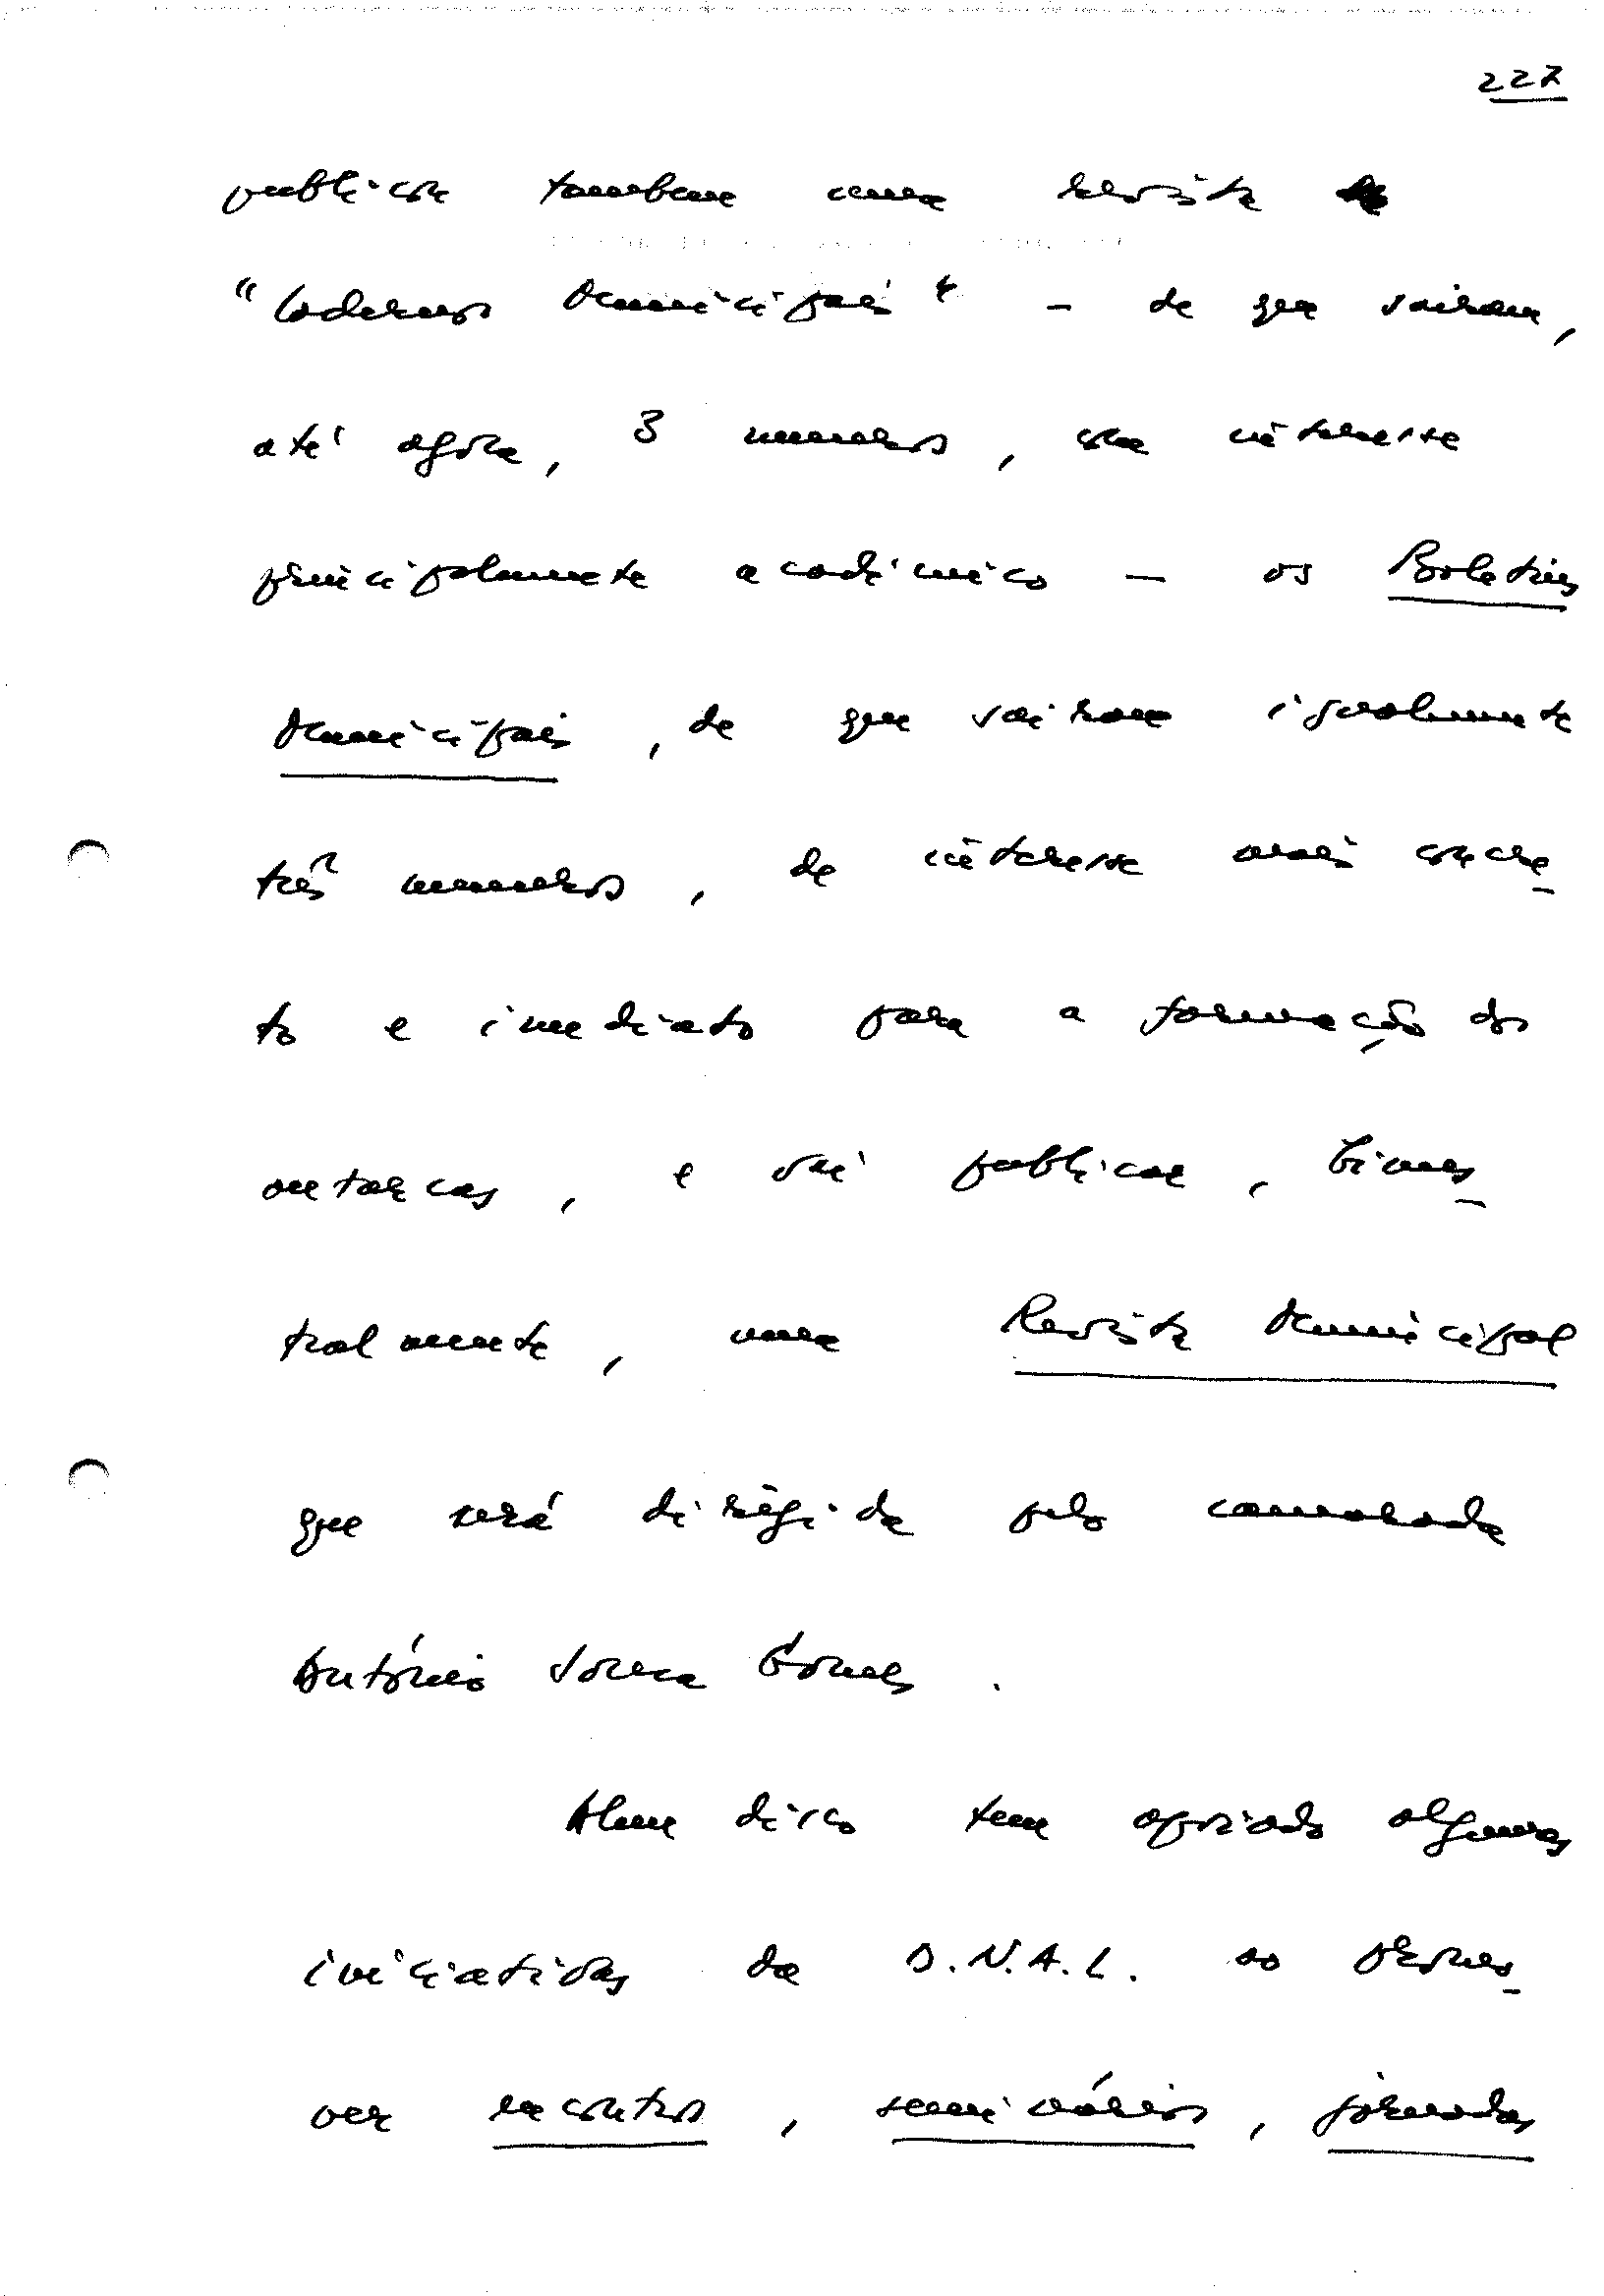 227
publicou também uma revista
"Cadernos Municipais" – de que saíram,
até agora, 3 numeros, com interesse
principalmente académico – os Boletins
Municipais, de que sairam igualmente
três numeros, de interesse mais concre-
to e imediato para a formação dos
autarcas, e vai publicar, bimes-
tralmente, uma Revista Municipal
que será dirigida pelo camarada
António Sousa Gomes.
Alem disso tem apoiado algumas
iniciativas da D.N.A.L. ao promo-
ver encontros, seminários, jornadas